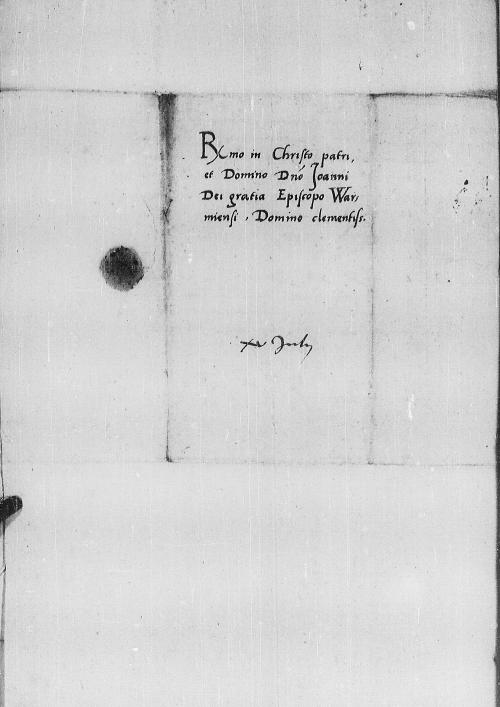 R<sup>x</sup>mo in Christo patri,
et Domino Dnõ Joanni
Dei gratia Episcopo War,
miensi, Domino clementiss.
xv July